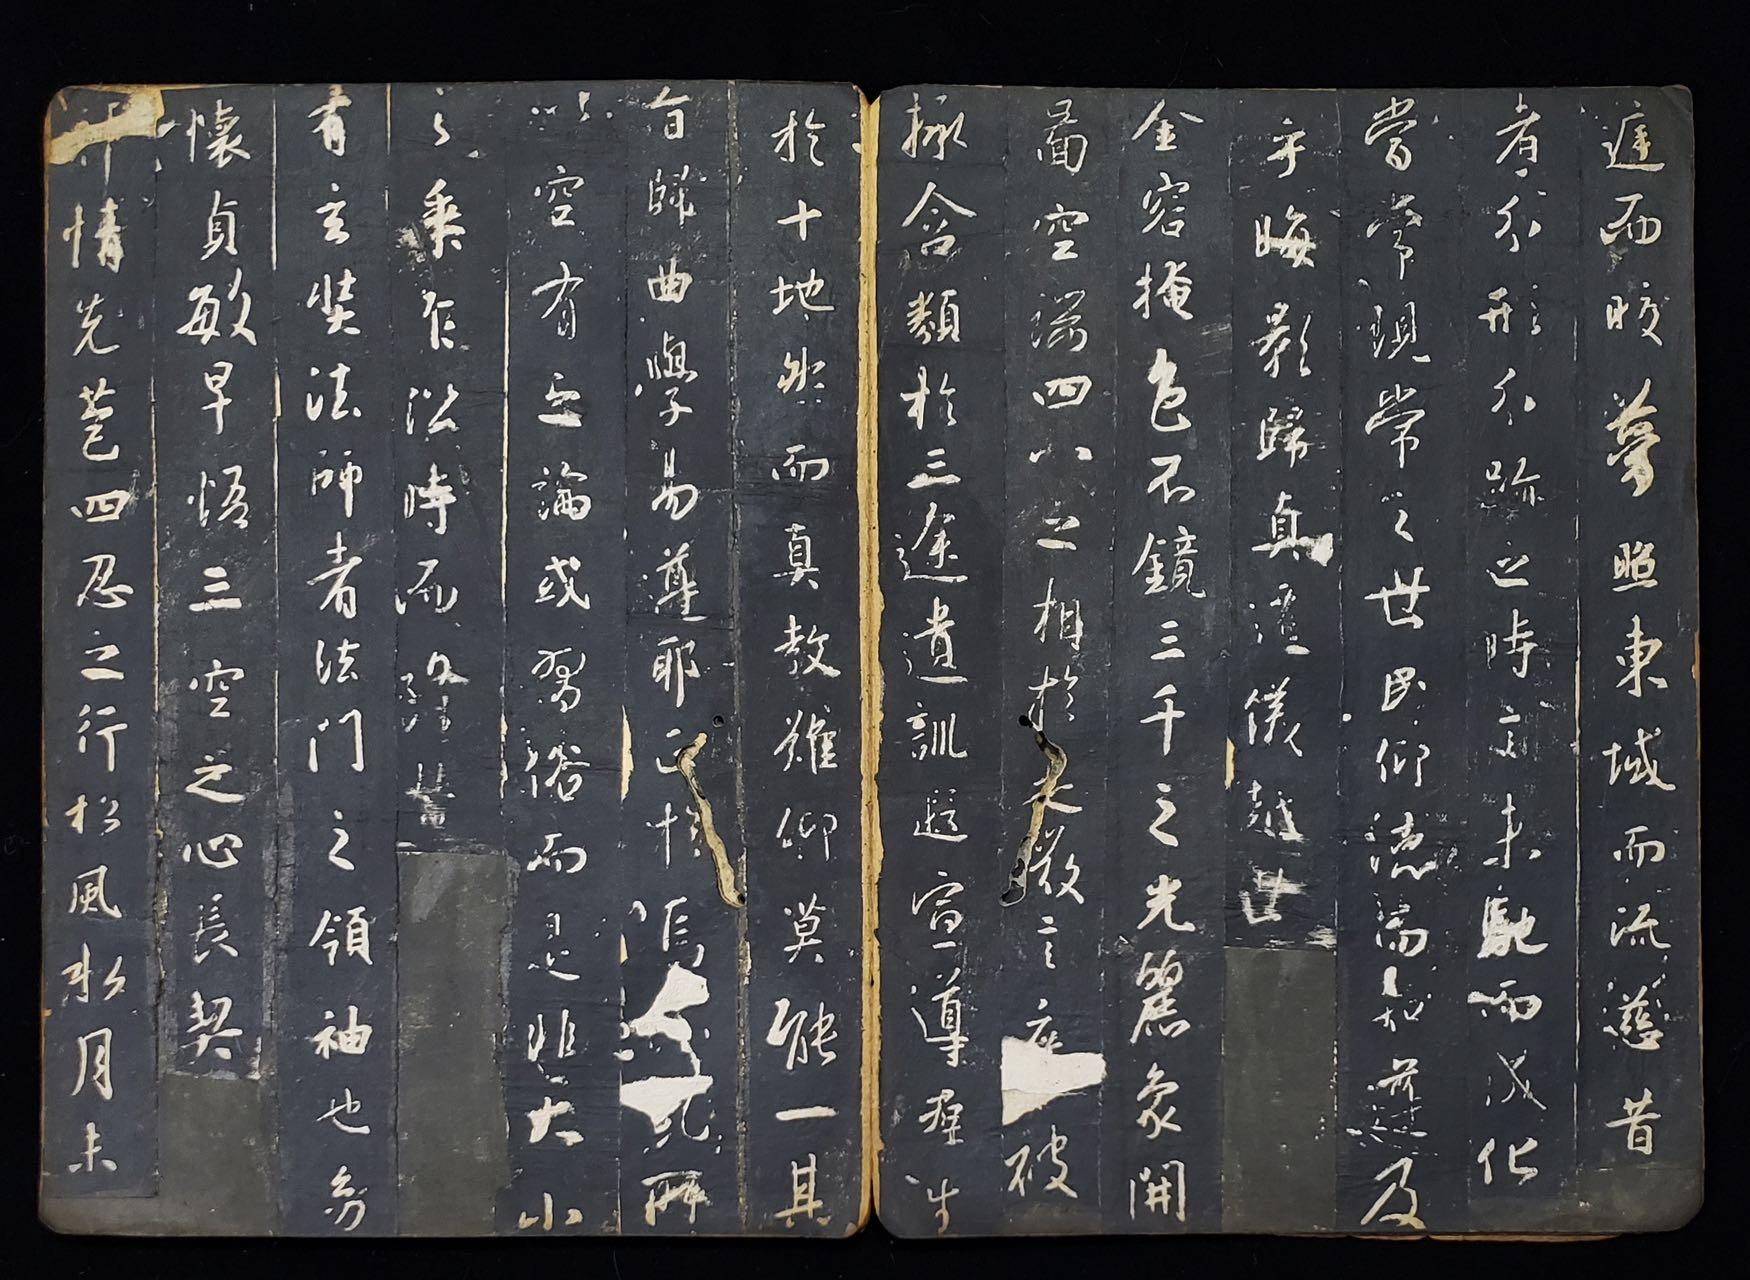 庭而皎夢照東域而流慈昔
者分形分跡之時言未馳而成化
當常現常之世民仰德而知遵及
乎晦影歸真遷儀越世
金容掩色不鏡三千之光麗象開
圖空端四八之相於微言廣被
拯含類於三途遺訓遐宣導群生
於十地然而真教難仰莫能一其
旨歸曲學易遵耶正於焉所
以空有之論或習俗而是非大小
之乘乍沿時而隆替
有玄奘法師者法門之領袖也幼
懷貞敏早悟三空之心長契
神情先苞四忍之行松風水月未